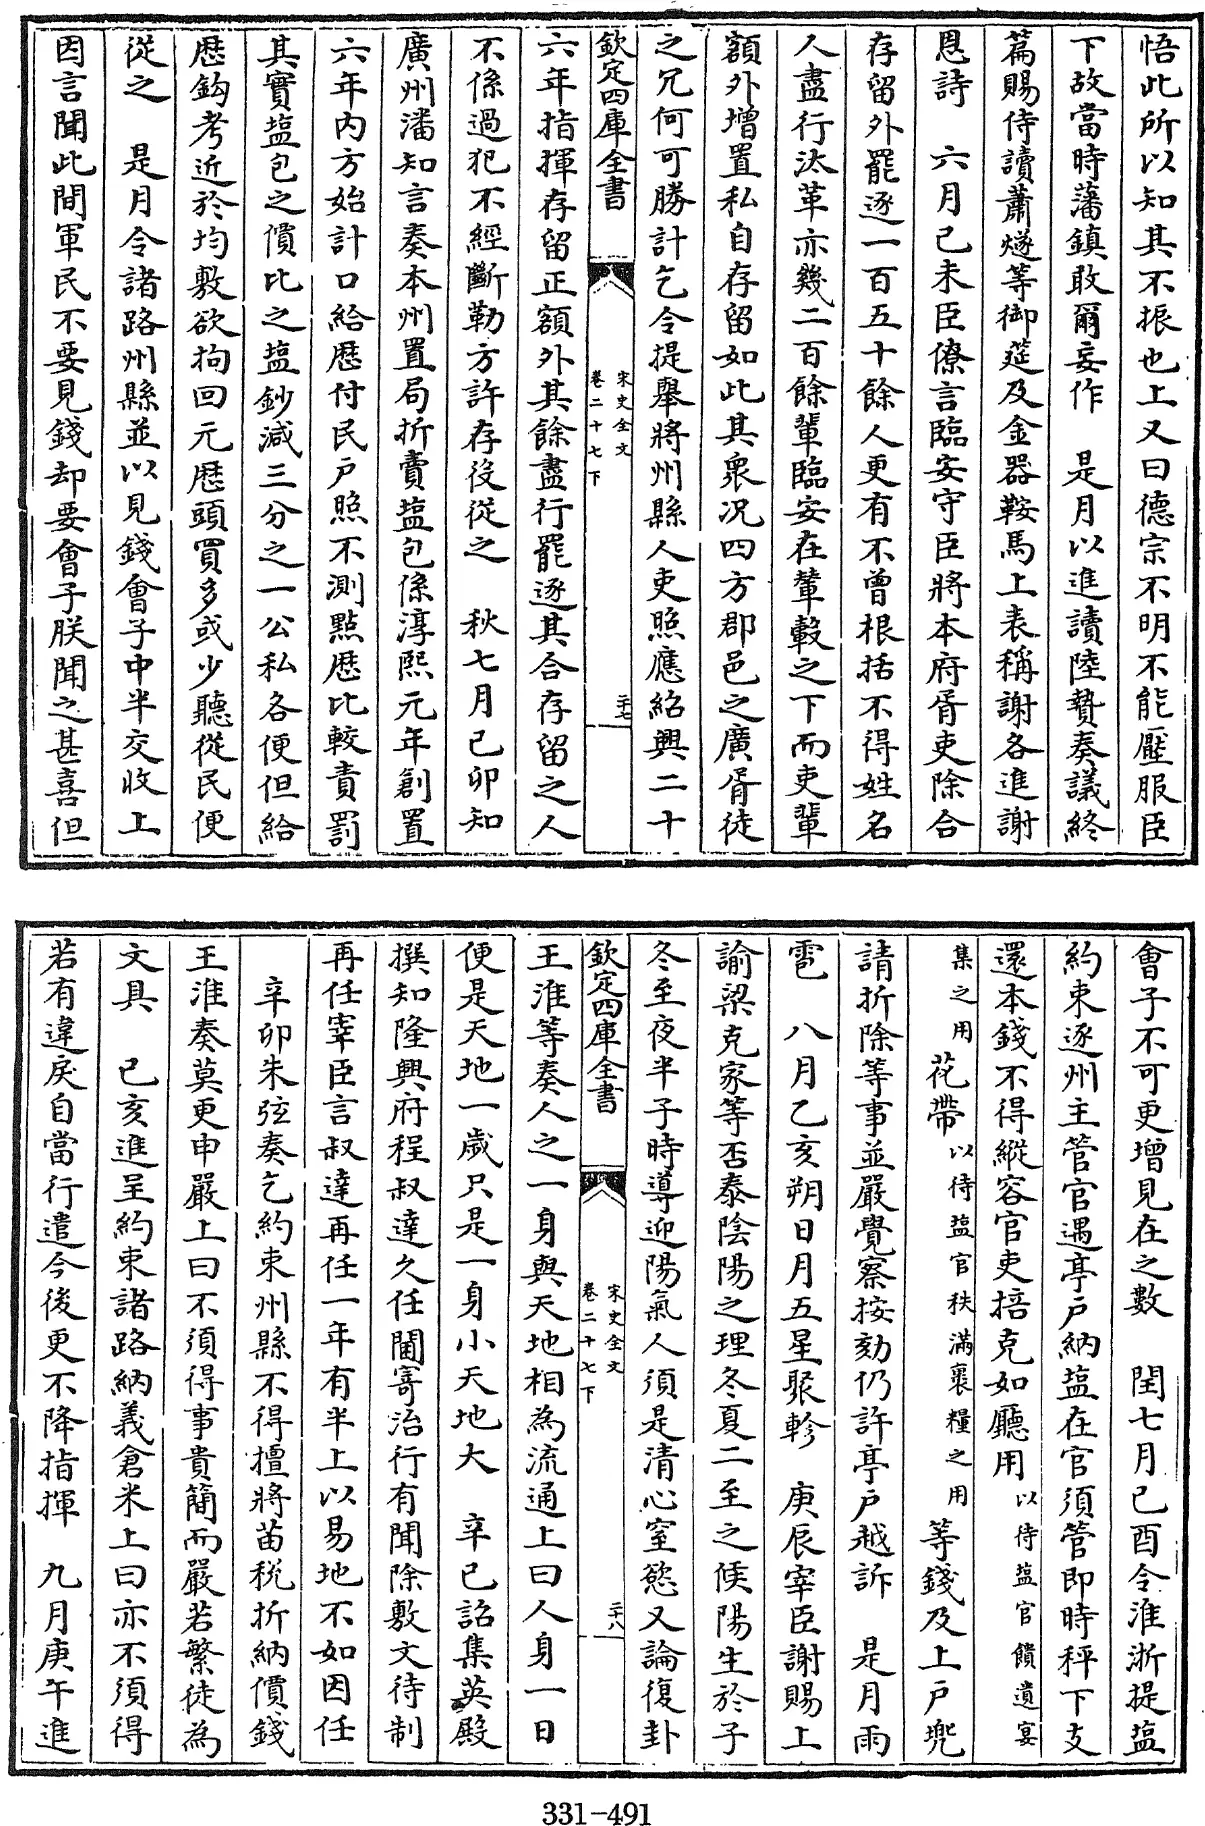 悟此所以知其不振也上又曰德宗不明不能壓服臣
下故當時藩鎮敢爾妄作　是月以進讀陸贄奏議終
篇賜侍讀蕭燧等御筵及金器鞍馬上表稱謝各進謝
恩詩　六月己未臣僚言臨安守臣將本府胥吏除合
存留外罷逐一百五十餘人更有不曾根括不得姓名
人盡行汰革亦幾二百餘輩臨安在輦轂之下而吏輩
額外增置私自存留如此其衆况四方郡邑之廣胥徒
之冗何可勝計乞令提舉將州縣人吏照應紹興二十
欽定四庫全書
宋史全文
卷二十七下
二十七
六年指揮存留正額外其餘盡行罷逐其合存留之人
不係過犯不經斷勒方許存役從之　秋七月己卯知
廣州潘知言奏本州置局折賣塩包係淳熙元年創置
六年内方始計口給歴付民户照不測㸃歴比較責罰
其實塩包之價比之塩鈔減三分之一公私各便但給
歴鈎考近於均敷欲拘回元歴頭買多或少聽從民便
從之　是月令諸路州縣並以見錢會子中半交收上
因言聞此間軍民不要見錢却要會子朕聞之甚喜但
會子不可更增見在之數　閏七月己酉令淮浙提塩
約束逐州主管官遇亭户納塩在官須管即時秤下支
還本錢不得縱容官吏掊克如廳用以待塩官饋遺宴
集之用花帶以待塩官秩滿裹糧之用等錢及上户兠
請折除等事並嚴覺察按劾仍許亭户越訴　是月雨
雹　八月乙亥朔日月五星聚軫　庚辰宰臣謝賜上
諭梁克家等否泰陰陽之理冬夏二至之候陽生於子
冬至夜半子時導迎陽氣人須是清心窒慾又論復卦
欽定四庫全書
宋史全文
卷二十七下
二十八
王淮等奏人之一身與天地相為流通上曰人身一日
便是天地一歲只是一身小天地大　辛巳詔集英殿
撰知隆興府程叔達久任閫寄治行有聞除敷文待制
再任宰臣言叔達再任一年有半上以易地不如因任
　辛卯朱弦奏乞約束州縣不得擅將苗税折納價錢
王淮奏莫更申嚴上曰不須得事貴簡而嚴若繁徒為
文具　己亥進呈約束諸路納義倉米上曰亦不須得
若有違戾自當行遣今後更不降指揮　九月庚午進
331-491